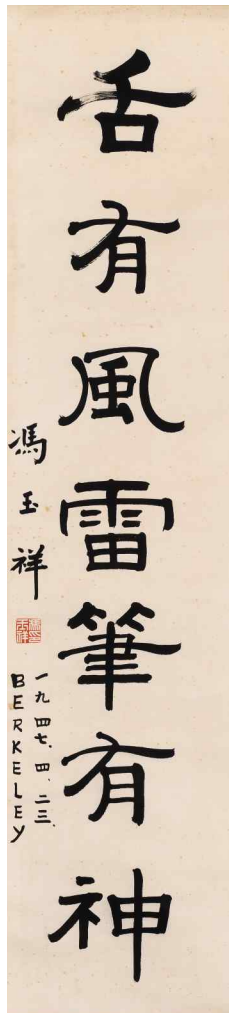 舌有風雷筆有神
馮玉祥
一九四七、四、二三.
BERKELEY